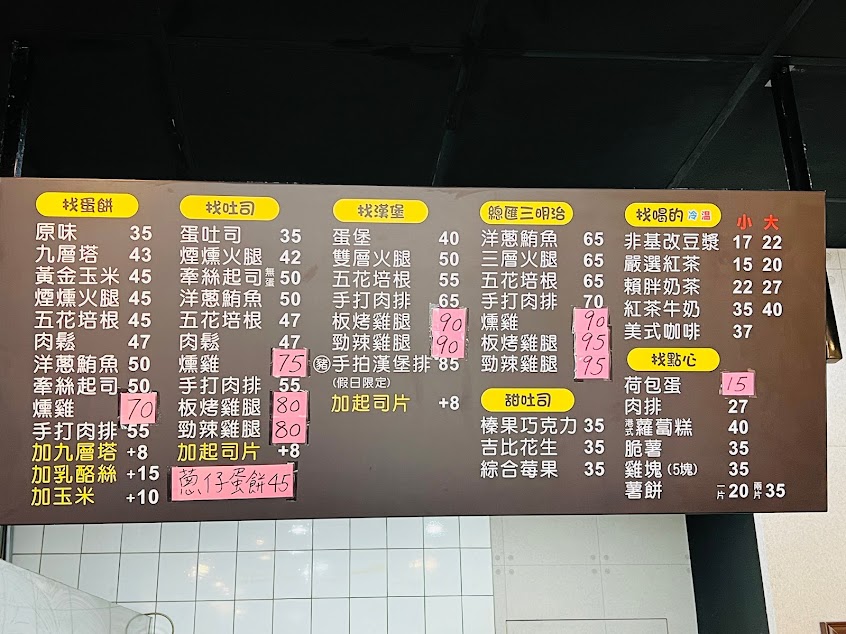 找蛋餅
原味 35
九層塔 43
黃金玉米 45
煙燻火腿 45
五花培根 45
肉鬆 47
洋蔥鮪魚 50
牽絲起司 50
燻雞 70
手打肉排 55
加九層塔 +8
加乳酪絲 +15
加玉米 +10
找吐司
蛋吐司 35
煙燻火腿 42
牽絲起司 無蛋 50
洋蔥鮪魚 50
五花培根 47
肉鬆 47
燻雞 75
手打肉排 55
板烤雞腿 80
勁辣雞腿 80
加起司片 +8
蔥仔蛋餅45
找漢堡
蛋堡 40
雙層火腿 50
五花培根 55
手打肉排 65
板烤雞腿 90
勁辣雞腿 90
豬 手拍漢堡排 85
(假日限定)
加起司片 +8
總匯三明治
洋蔥鮪魚 65
三層火腿 65
五花培根 65
手打肉排 70
燻雞 90
板烤雞腿 95
勁辣雞腿 95
甜吐司
榛果巧克力 35
吉比花生 35
綜合莓果 35
找喝的 冷 溫 小 大
非基改豆漿 17 22
嚴選紅茶 15 20
賴胖奶茶 22 27
紅茶牛奶 35 40
美式咖啡 37
找點心
荷包蛋 15
肉排 27
港式蘿蔔糕 40
脆薯 35
雞塊(5塊) 35
薯餅 一片 20 兩片 35